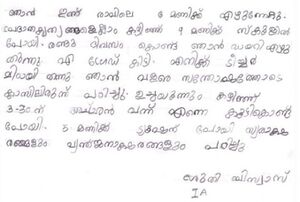 ഞാൻ ഇന്ന് രാവിലെ 6 മണിക്ക് എഴുന്നേറ്റു.
പ്രഭാതകൃത്യങ്ങളെല്ലാം കഴിഞ്ഞ് 9 മണിക്ക് സ്കൂളിൽ
പോയി. രണ്ടു ദിവസം കൊണ്ട് ഞാൻ ഡയറി എഴു
തിന്നു എ ഗ്രേഡ് കിട്ടി. എനിക്ക് ടീച്ചർ
മിഠായി തന്നു ഞാൻ വളരെ സന്തോഷത്തോടെ
ക്ലാസിലിരുന്ന് പഠിച്ചു. ഉച്ചയൂണു കഴിഞ്ഞ്
3-30ന് അച്ഛൻ വന്ന് എന്നെ കൂട്ടികൊണ്ട്
പോയി. 5 മണിക്ക് ട്യൂഷന് പോയി സ്വരാക്ഷ
രങ്ങളും വ്യഞ്ജനാക്ഷരങ്ങളും പഠിച്ചു
ബിശ്വാസ്
I A